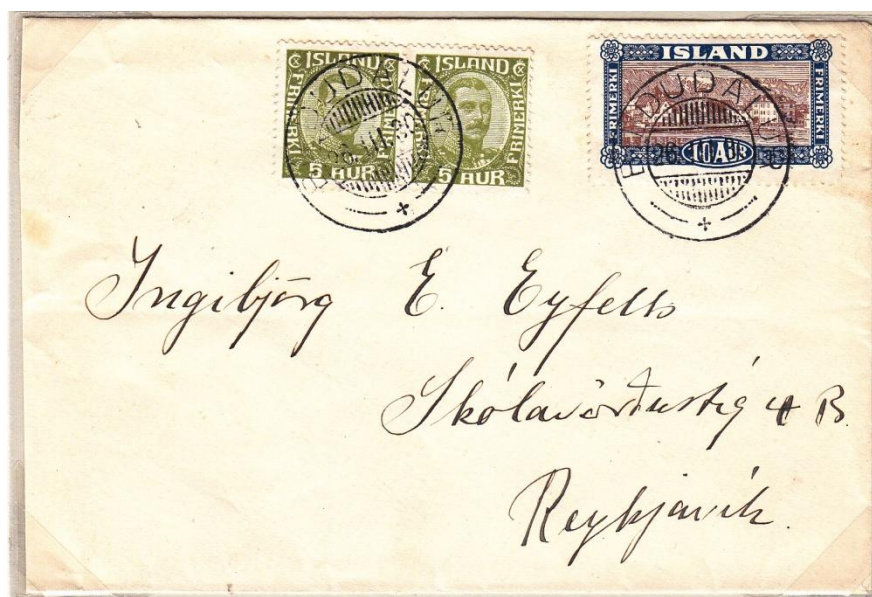 ISLAND
FRIMERKI FRIMERKI
5 AUR
ISLAND
FRIMERKI
5 AUR
ISLAND
FRIMERKI FRIMERKI
10 AUR
BILDUDALUR
26. III.
BILDUDALUR
26.
Ingibjörg E. Eyfells
Skólavörðustíg 4 B.
Reykjavík.